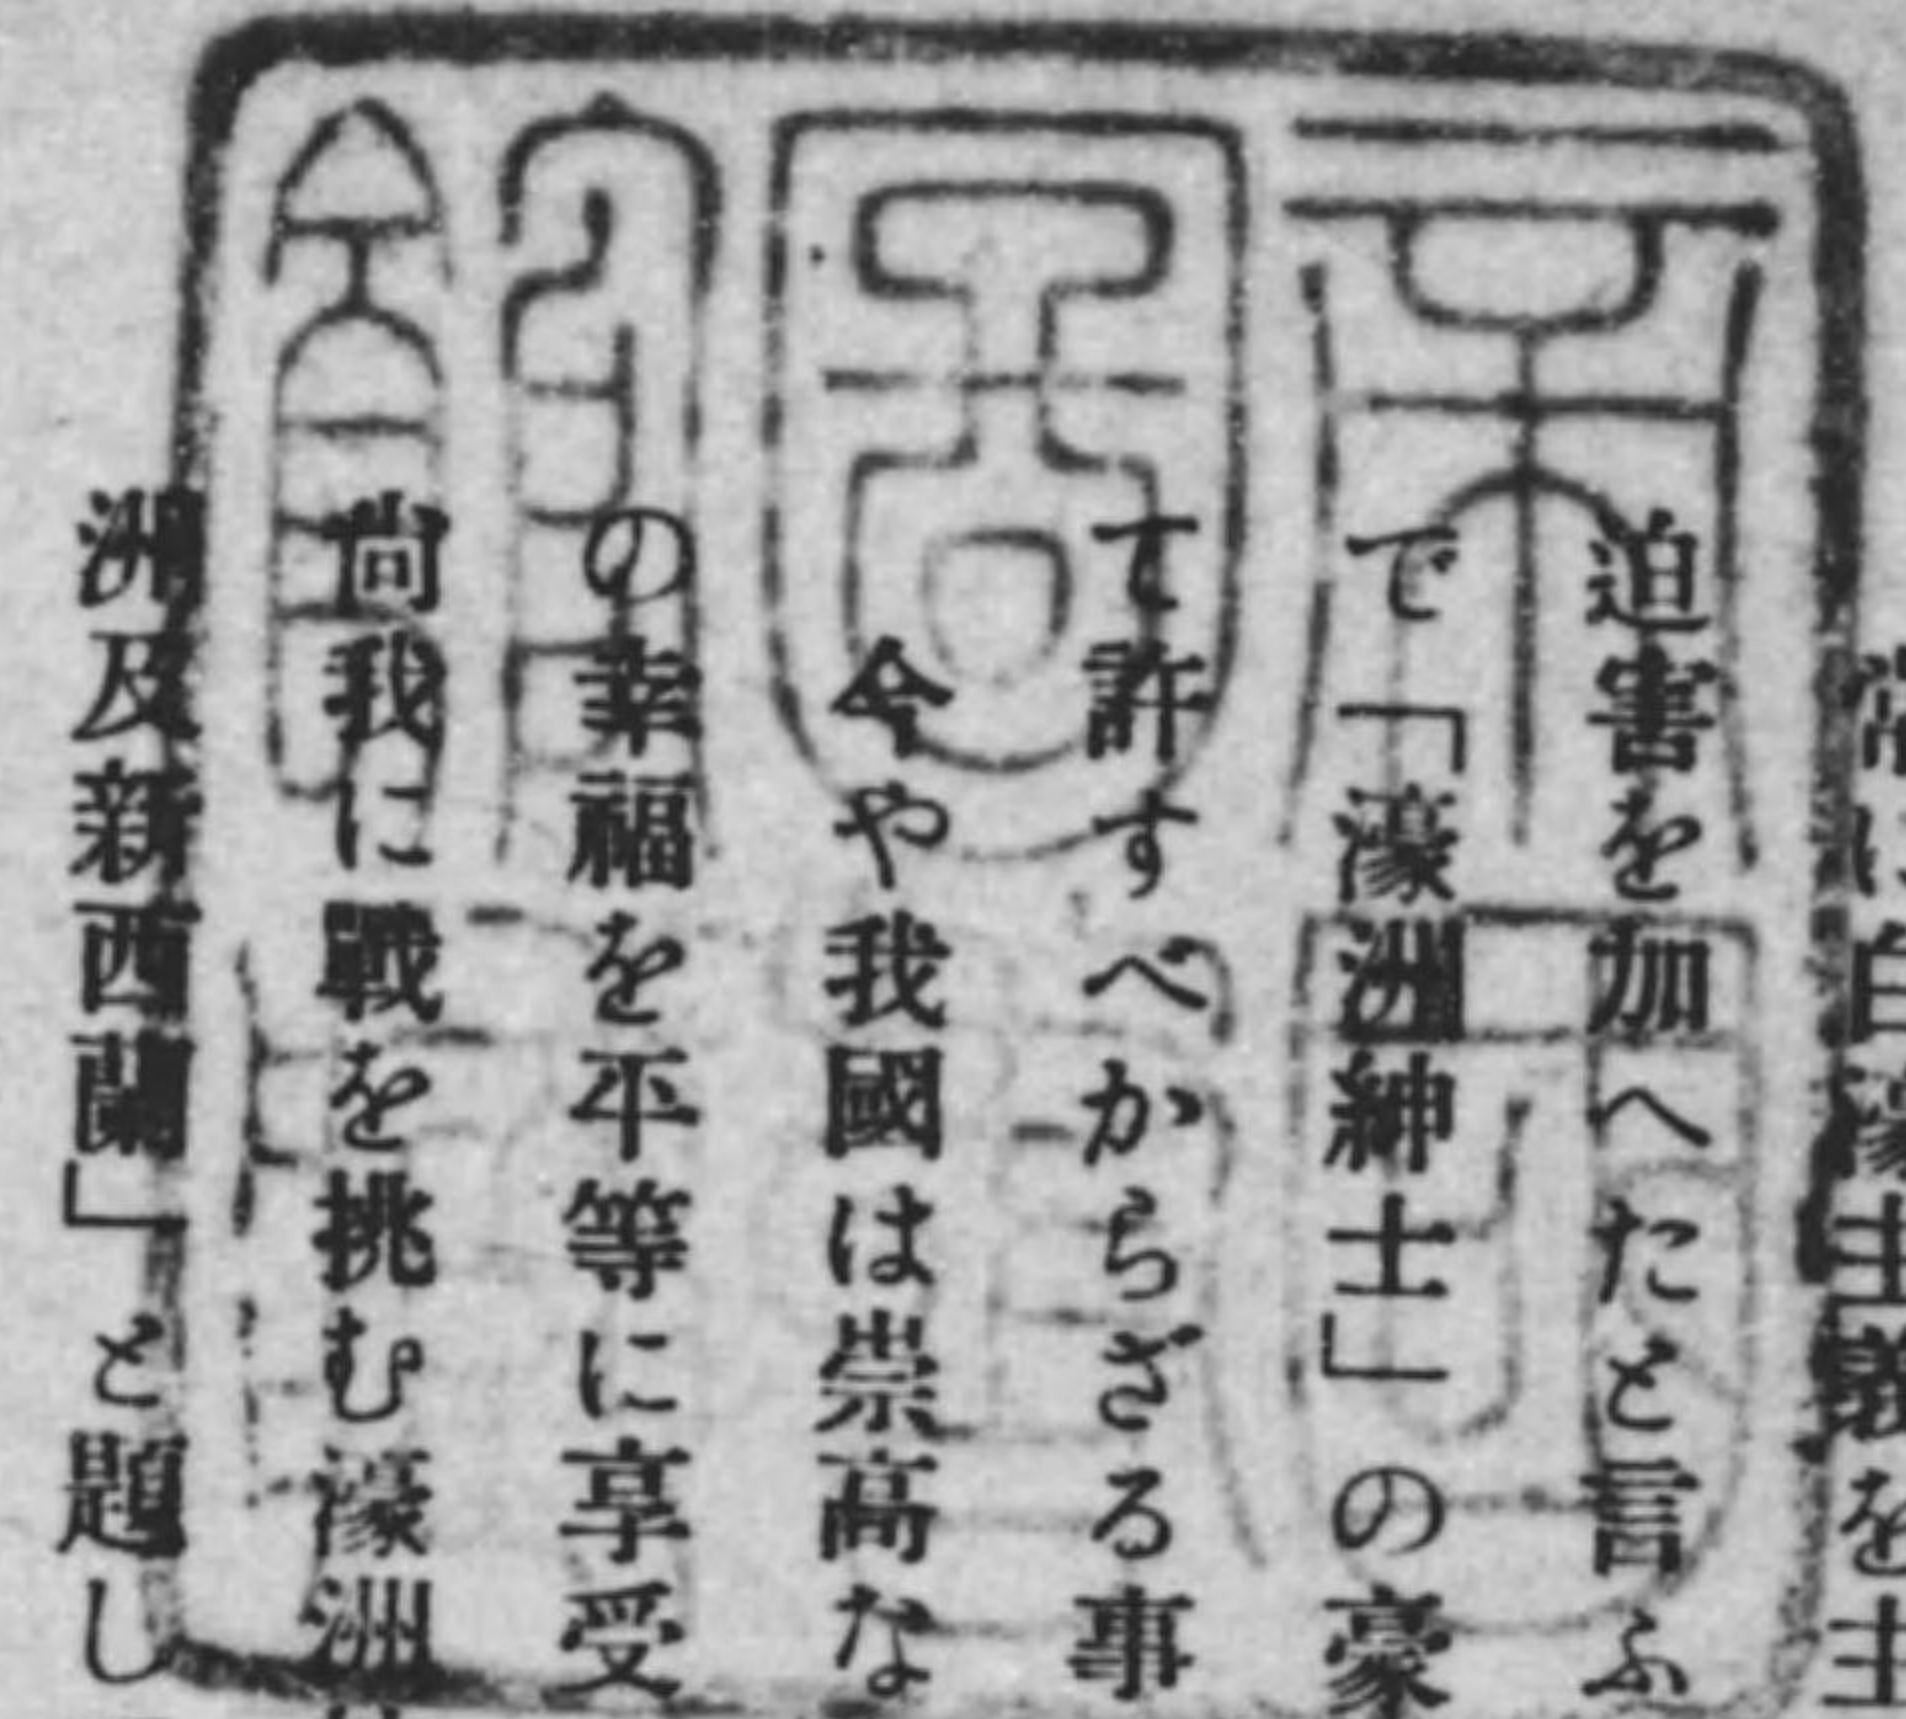 常に白濠主義を主
迫害を加へたと言ふ
で「濠洲紳士」の豪
て許すべからざる事
今や我國は崇高な
の幸福を平等に享受
尚我に戰を挑む濠洲
洲及新西蘭」と題し